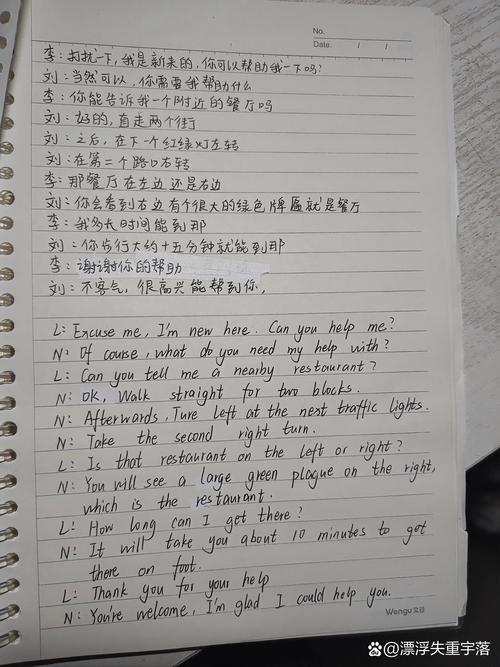 No.
Date. / /
李：打扰一下，我是新来的，你可以帮助我一下吗？
刘：当然可以，你需要我帮助什么
李：你能告诉我一个附近的餐厅吗
刘：好的，直走两个街
刘：之后，在下一个红绿灯左转
刘：在第二个路口右转
李：那餐厅在左边还是右边
刘：你会看到右边有个很大的绿色牌匾就是餐厅
李：我多长时间能到那
刘：你步行大约十五分钟就能到那
李：谢谢你的帮助
刘：不客气，很高兴能帮到你，
L: Excuse me, I'm new here. Can you help me?
N: Of course, what do you need my help with?
L: Can you tell me a nearby restaurant?
N: OK, Walk straight for two blocks.
N: Afterwards, Ture left at the next traffic lights.
N: Take the second right turn.
L: Is that restaurant on the left or right?
N: You will see a large green plague on the right,
which is the restaurant.
L: How long can I get there?
N: It will take you about 10 minutes to get
there on foot.
L: Thank you for your help
N: You're welcome, I'm glad I could help you.
Wengu 文谷
@漂浮失重宇落